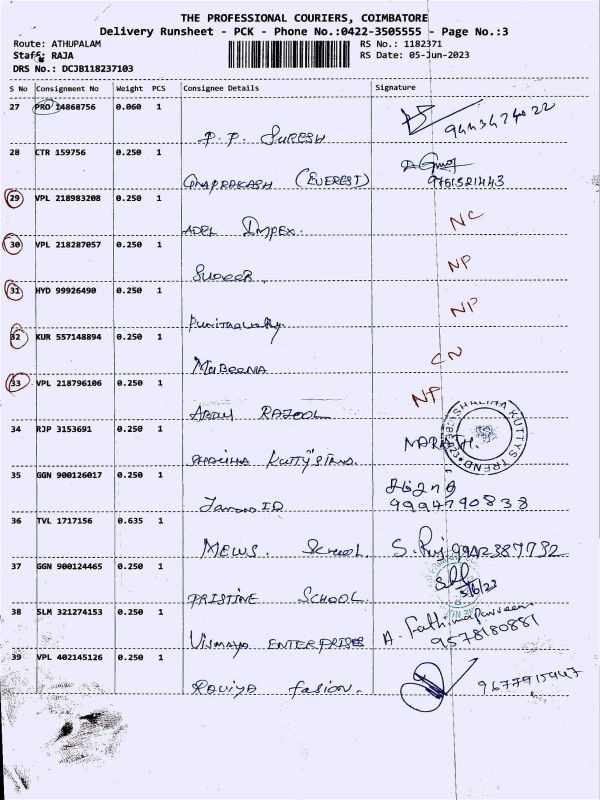 THE PROFESSIONAL COURIERS, COIMBATORE
Delivery Runsheet - PCK - Phone No.:0422-3505555 - Page No.:3
Route: ATHUPALAM
RS No.: 1182371
Staff: RAJA
RS Date: 05-Jun-2023
DRS No.: DCJB118237103
S No Consignment No Weight PCS Consignee Details Signature
27 PRO 14868756 0.060 1
P. P. SURESH
28 CTR 159756 0.250 1
GNAPRAKASH (EVEREST) 9761321443
29 VPL 218983208 0.250 1
ADRL IMPEX. NC
30 VPL 218287057 0.250 1
SUDEER. NP
31 HYD 99926490 0.250 1
NP
32 KUR 557148894 0.250 1
CN
33 VPL 218796106 0.250 1
ABDUL RAZOOL NP
34 RJP 3153691 0.250 1
SHALIHA KUTTY'S TREND
35 GGN 900126017 0.250 1
9994790838
36 TVL 1717156 0.635 1
MEWS. School. S. 9942387732
37 GGN 900124465 0.250 1
PRISTINE SCHOOL. 5/6/23
38 SLM 321274153 0.250 1
VISMAYA ENTERPRISES A. Fathima Parveen
9578180881
39 VPL 402145126 0.250 1
Raviya fasion. 9677915947